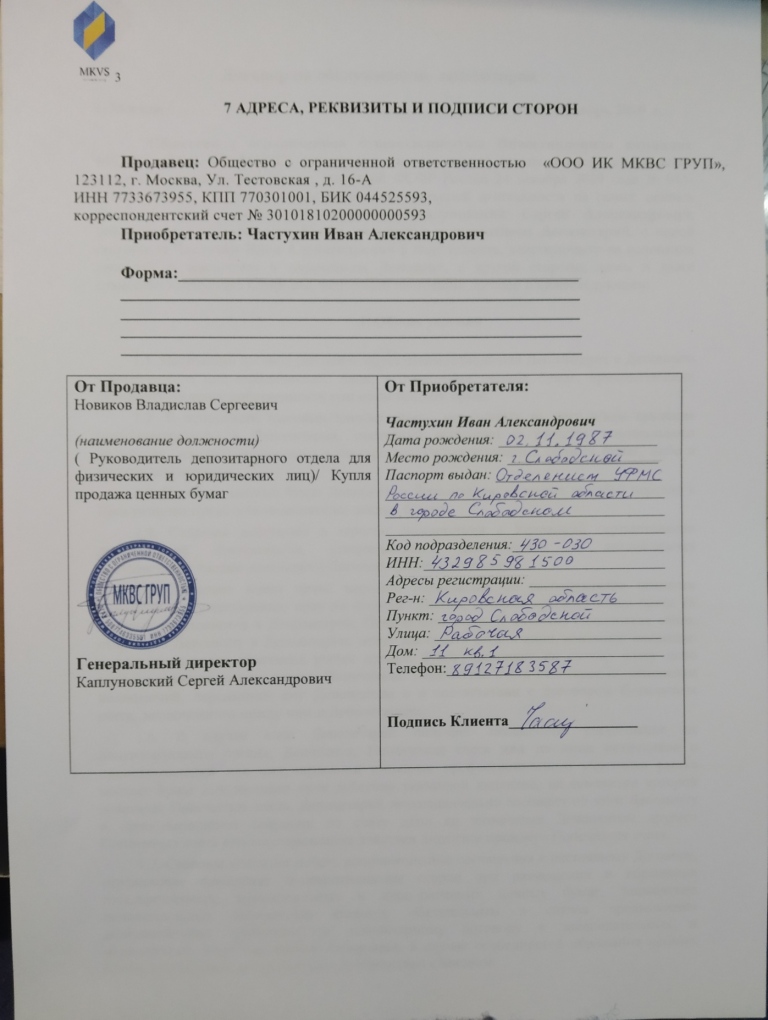 MKVS
3
7 АДРЕСА, РЕКВИЗИТЫ И ПОДПИСИ СТОРОН
Продавец: Общество с ограниченной ответственностью «ООО ИК МКВС ГРУП»,
123112, г. Москва, Ул. Тестовская , д. 16-А
ИНН 7733673955, КПП 770301001, БИК 044525593,
корреспондентский счет № 30101810200000000593
Приобретатель: Частухин Иван Александрович
Форма:
От Продавца:
Новиков Владислав Сергеевич
(наименование должности)
( Руководитель депозитарного отдела для
физических и юридических лиц)/ Купля
продажа ценных бумаг
МКВС ГРУП
Генеральный директор
Каплуновский Сергей Александрович
От Приобретателя:
Частухин Иван Александрович
Дата рождения: 02.11.1987
Место рождения: г. Слободской
Паспорт выдан: Отделением УФМС
России по Кировской области
в городе Слободском
Код подразделения: 430-030
ИНН: 432985981500
Адресы регистрации:
Рег-н: Кировская область
Пункт: город Слободской
Улица: Рабочая
Дом: 11 кв.1
Телефон: 89127183587
Подпись Клиента